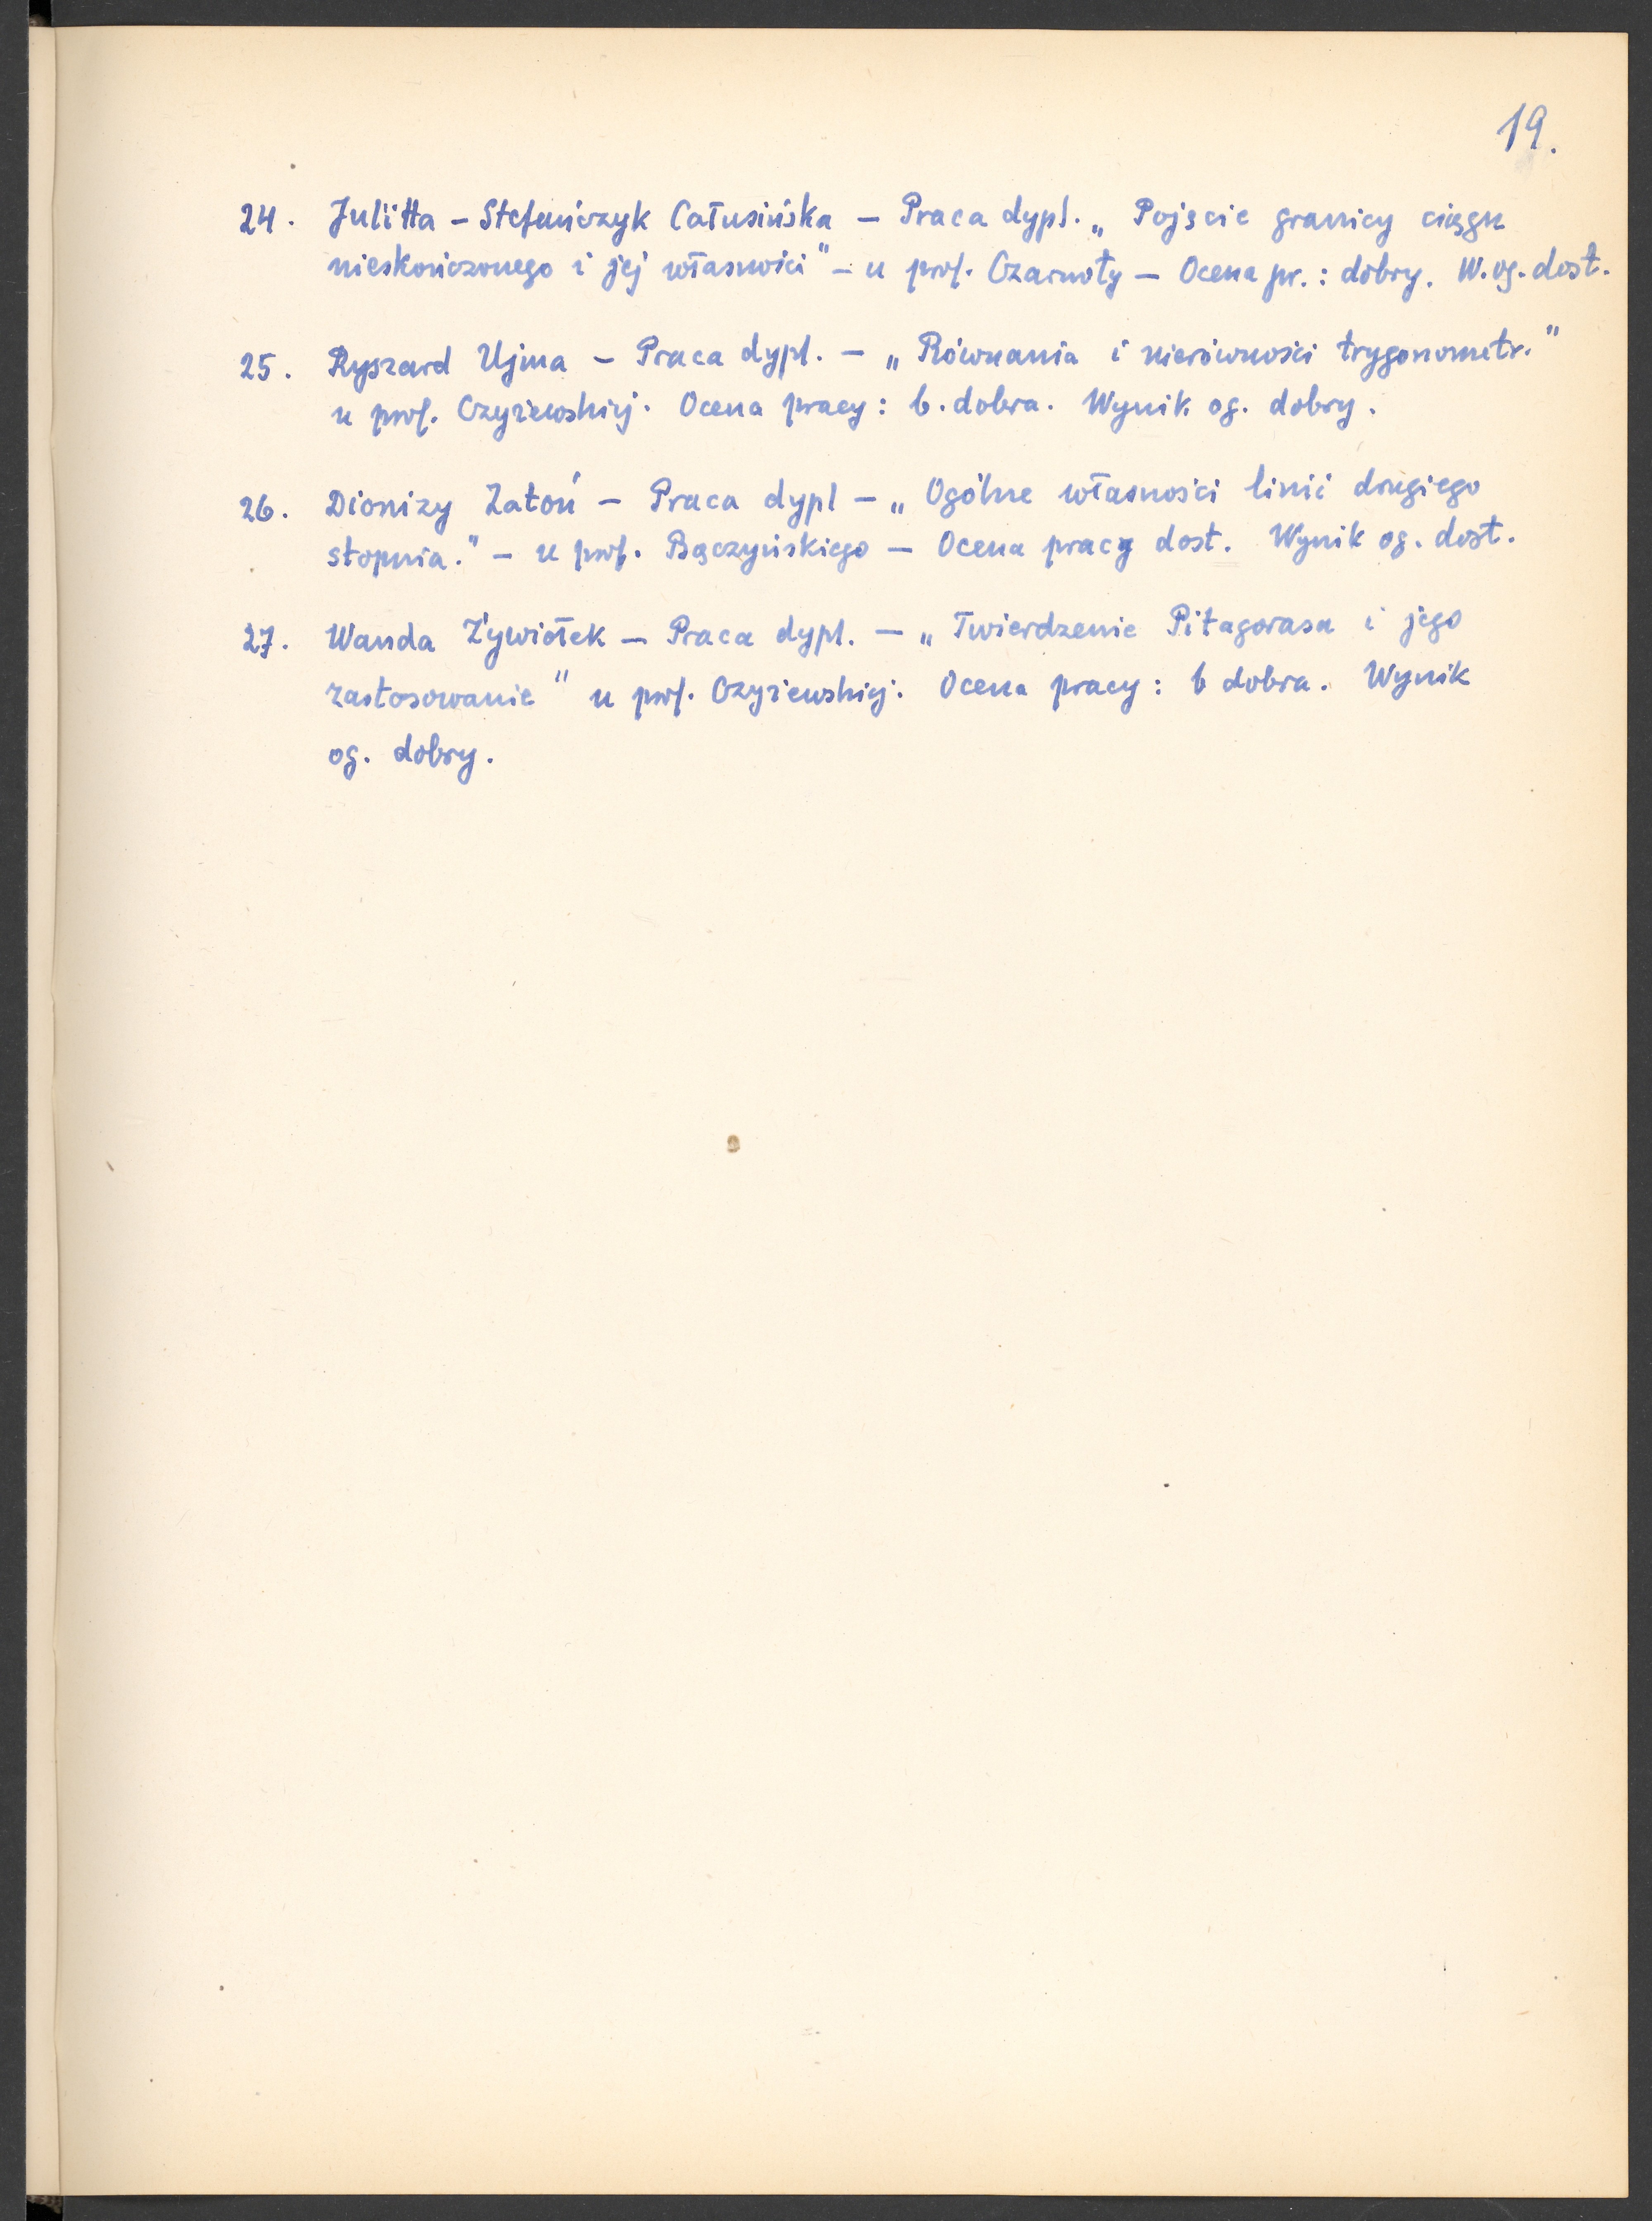 19.
24. Julitta – Stefańczyk Całusińska – Praca dypl. „Pojęcie granicy ciągu
nieskończonego i jej własności" – u prof. Czarnoty – Ocena pr.: dobry. W. og. dost.
25. Ryszard Ujma – Praca dypl. – „Równania i nierówności trygonometr."
u prof. Czyżewskiej. Ocena pracy: b. dobra. Wynik og. dobry.
26. Dionizy Zatoń – Praca dypl – „Ogólne własności linii drugiego
stopnia." – u prof. Bączyńskiego – Ocena pracy dost. Wynik og. dost.
27. Wanda Żywiołek – Praca dypl. – „Twierdzenie Pitagorasa i jego
zastosowanie" u prof. Czyżewskiej. Ocena pracy: b dobra. Wynik
og. dobry.